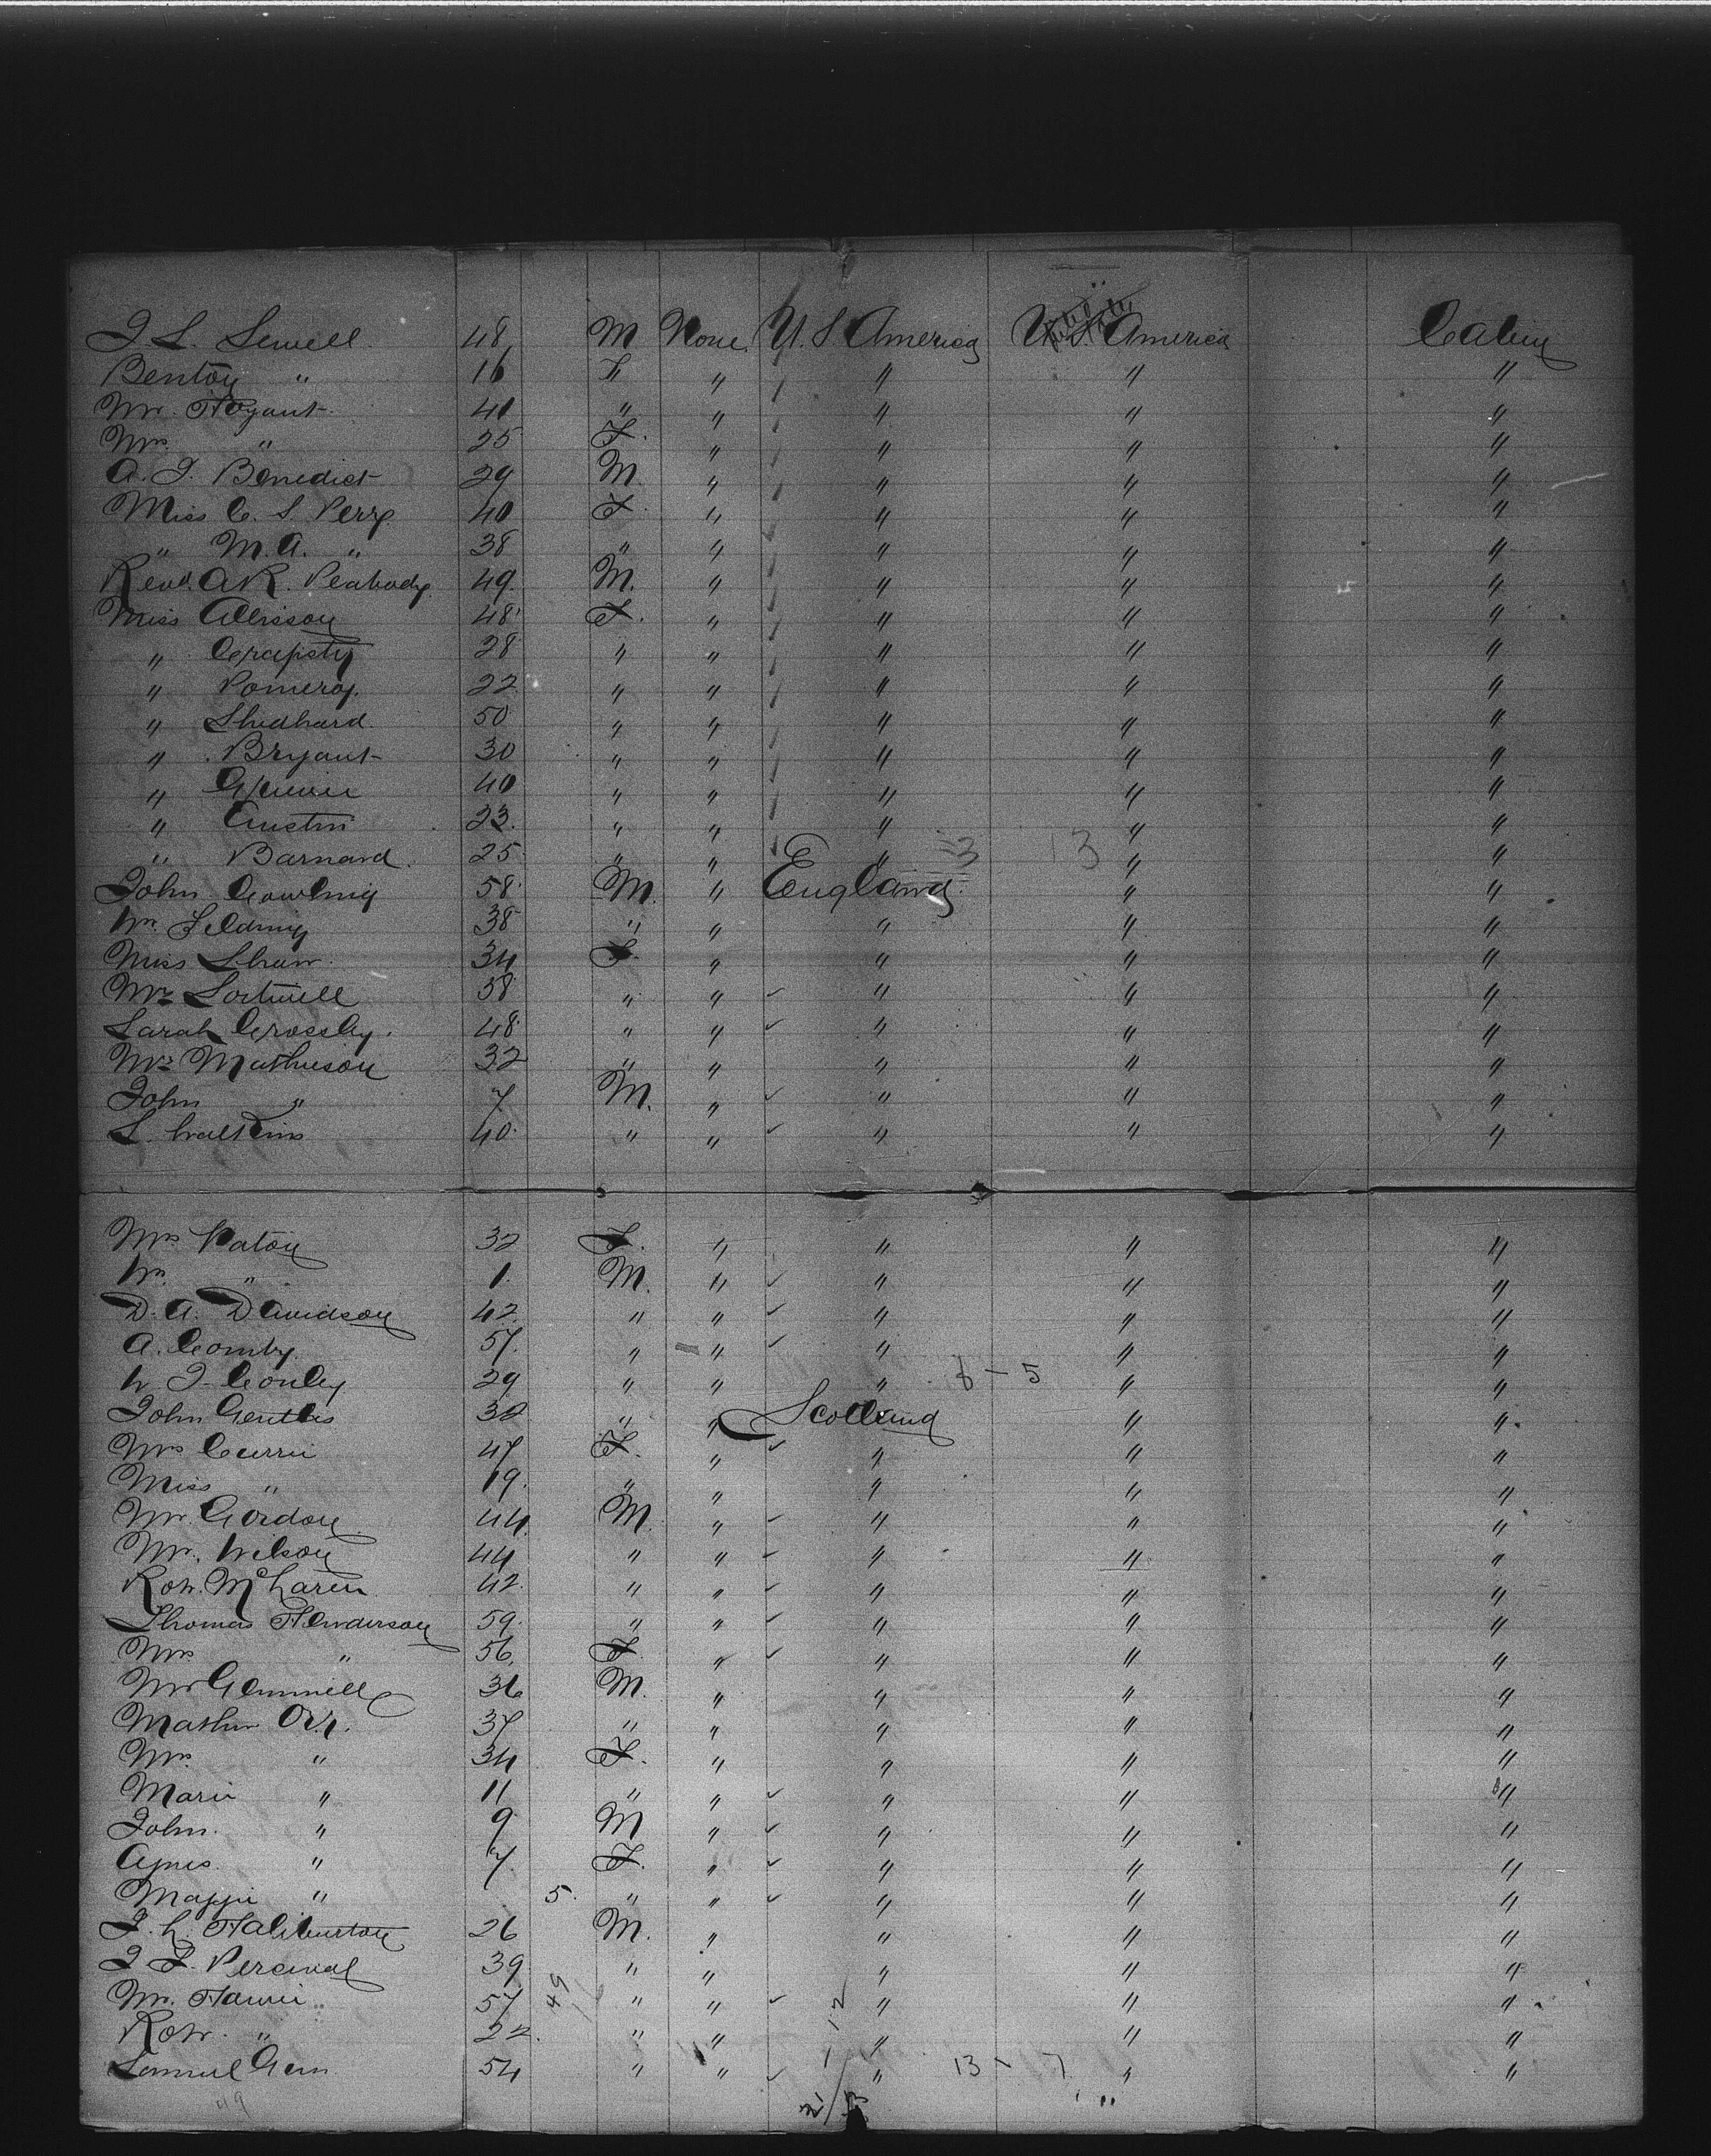 J. S. Sewell. 48 M None U.S America U.S. America Cabin
Benton " 16 " " " " "
Mr. Bryant 40 " " " " "
Mrs " 25 F. " " " "
A. J. Benedict 29 M " " " "
Miss C. S. Perry 40 F " " " "
" M. A. " 38 " " " " "
Revd. A R. Peabody 49 M. " " " "
Miss Allison 48 F. " " " "
" 28 " " " " "
" Pomeroy. 22 " " " " "
" 50 " " " " "
" Bryant 30 " " " " "
" 40 " " " " "
" Austin 23. " " " " "
" Barnard. 25 " " " 3 13 " "
John Cowling 58 M. " England. " "
Wm. 38 " " " " "
Miss Shaw. 34 F. " " " "
Mrs Sortwell 58 " " " " "
Sarah Crossley. 48 " " " " "
Mrs Mathieson 32 " " " " "
John " 7 M. " " " "
S. Watkins 40 " " " " "
Mrs Paton 32 F. " " " "
Wm. " 1. M. " " " "
D. A. Davidson 42. " " " " "
A. 57. " " " " "
W J. Conley 29 " " " 8 - 5 " "
John Gentles 32 " " Scotland " "
Mrs Currie 47 F. " " " "
Miss " 19. " " " " "
Mr. Gordon. 44 M. " " " "
Mr. Wilson 44 " " " " "
Robt. McLaren 42. " " " " "
Thomas Henderson 59. " " " " "
Mrs " 56. F. " " " "
Mr Gemmell 36 M. " " " "
Mathew Orr. 37 " " " " "
Mrs " 34 F. " " " "
Marie " 11 " " " " "
John. " 9 M " " " "
Agnes. " 7. F. " " " "
Maggie " 5. " " " " "
J. H. Haliburton 26 M. " " " "
J F. Percival 39 " " " " "
Mr. 57 49 " " " " "
Robt. " 22. " " 12 " " "
Samuel 54 " " " 13 - 7 " "
49 21/